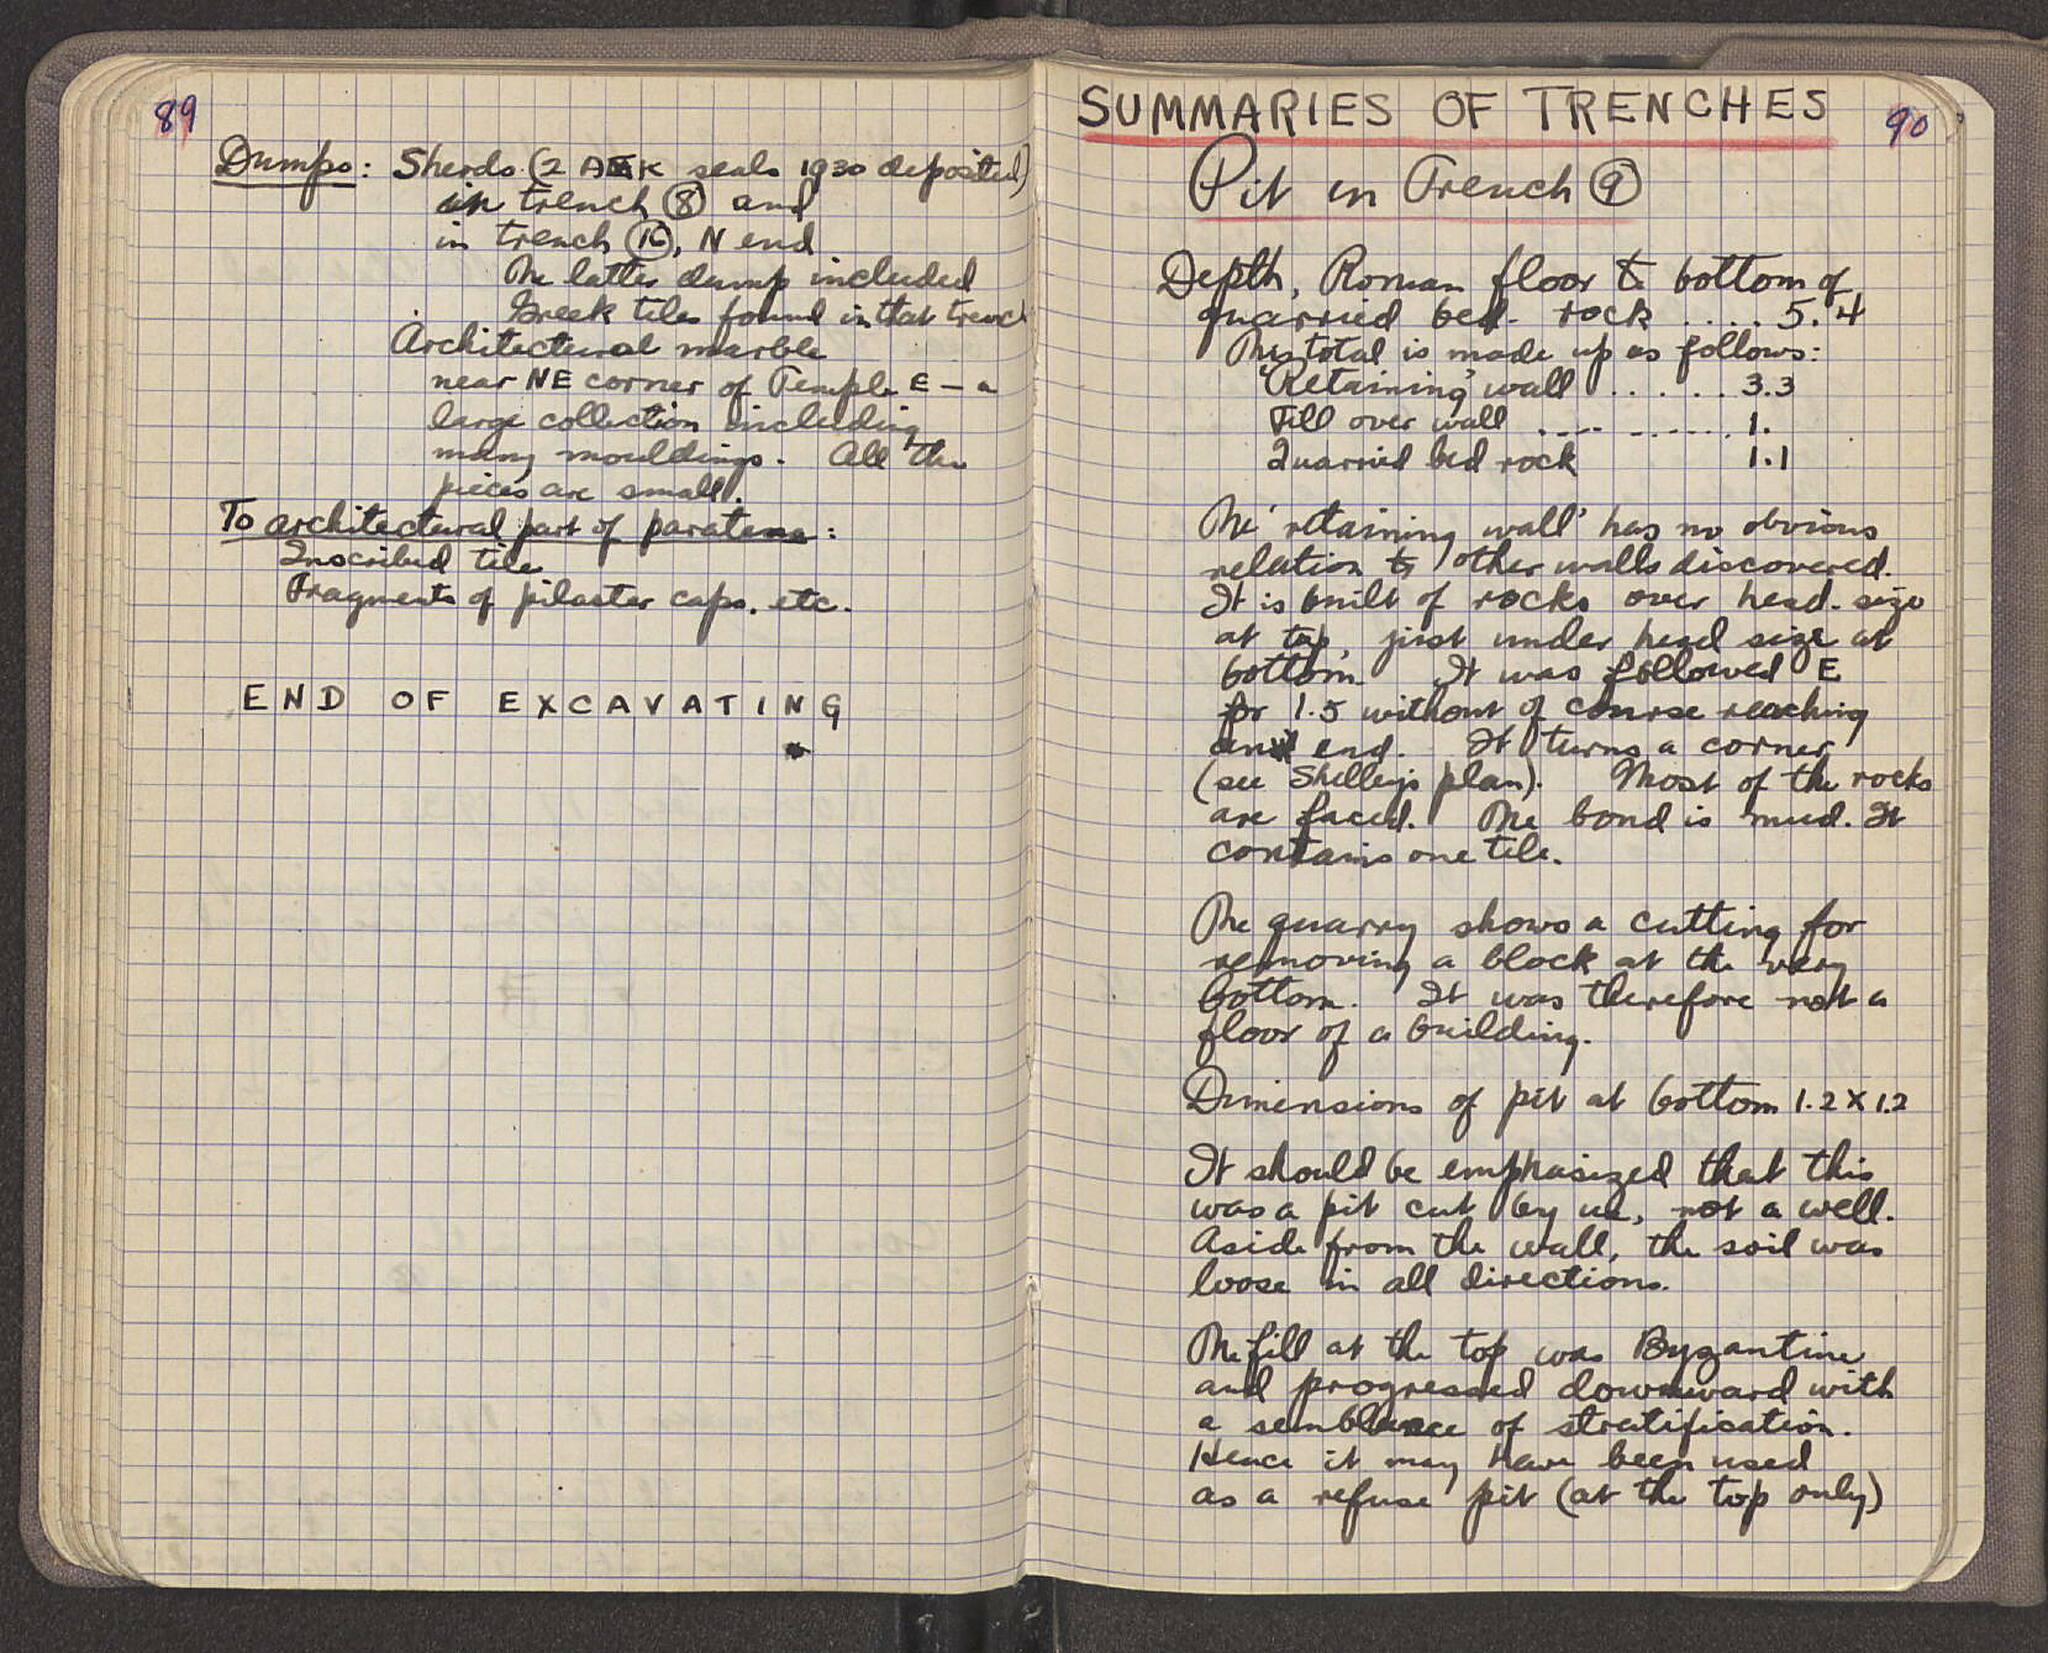 89
Dumps: Sherds (2 AEK seals 1930 deposited)
in trench ⑧ and
in trench ⑯, N end
The latter dump included
Greek tiles found in that trench
Architectural marble
near NE corner of Temple E – a
large collection including
many mouldings. All the
pieces are small.
To architectural part of
Inscribed tile
Fragments of pilaster caps, etc.
END OF EXCAVATING
SUMMARIES OF TRENCHES
90
Pit in Trench ⑨
Depth, Roman floor to bottom of
quarried bed-rock ..... 5.4
This total is made up as follows:
'Retaining' wall ...... 3.3
Fill over wall ........... 1.
Quarried bed rock 1.1
The 'retaining wall' has no obvious
relation to other walls discovered.
It is built of rocks over head-size
at top, just under head size at
bottom. It was followed E
for 1.5 without of course reaching
an end. It turns a corner
(see Shelley's plan). Most of the rocks
are faced. The bond is mud. It
contains one tile.
The quarry shows a cutting for
removing a block at the very
bottom. It was therefore not a
floor of a building.
Dimensions of pit at bottom 1.2 X 1.2
It should be emphasized that this
was a pit cut by us, not a well.
Aside from the wall, the soil was
loose in all directions.
The fill at the top was Byzantine
and progressed downward with
a semblance of stratification.
Hence it may have been used
as a refuse pit (at the top only)